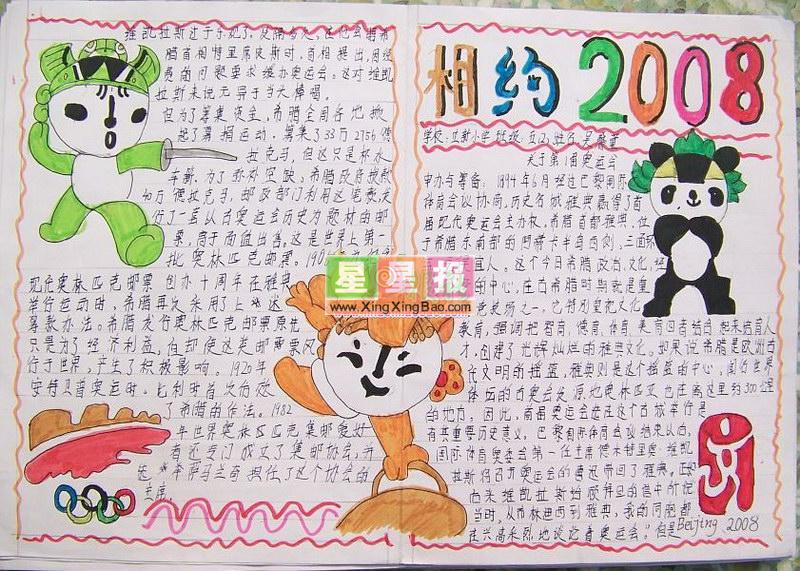 相约2008
学校:立新小学 班级:五(2)姓名:吴
关于第1届奥运会
申办与筹备:1894年6月经过巴黎国际
体育会议协商,历史名城雅典赢得了首
届现代奥运会主办权。希腊首都雅典,位
于希腊东南部的阿蒂卡半岛西侧,三面环
宜人。这个今日希腊政治、文化、经
的中心,在古希腊时期就是重
竞技场之一,它特别重视文化
教育,强调把智育、德育、体育、美育四者结合起来培育人
才,创建了光辉灿烂的雅典文化。如果说希腊是欧洲古
代文明的摇篮,雅典则是这个摇篮的中心,闻名世界
体坛的古奥会发源地奥林匹亚也在离这里约300公里
的地方。因此,首届奥运会选在这个古城举行是
有其重要历史意义。巴黎国际体育会议结束以后,
国际体育奥委会第一任主席德米特里乌·维凯
拉斯将召开奥运会的喜讯带回了雅典,正如
而来维凯拉斯给顾拜旦的信中所说
当时,从布林迪西到雅典,我的同胞都
在兴高采烈地谈论着奥运会。"但是
Beijing 2008
维凯拉斯过于乐观了,没隔多久,在他会晤希
腊首相特里库皮斯时,首相提出,因经
费的问题要求缓办奥运会。这对维凯
拉斯来说无异于当头棒喝。
但为了筹集资金,希腊全国各地掀
起了募捐运动,募集了33万2756德
拉克马,但这只是杯水
车薪。为了弥补空缺,希腊政府拨款
40万德拉克马,邮政部门利用这笔款发
行了一套以古奥运会历史为题材的邮
票,高于面值出售,这是世界上第一
批奥林匹克邮票。190
现代奥林匹克邮票创办十周年在雅典
举行运动时,希腊再次采用了上述
筹款办法。希腊发行奥林匹克邮票原先
只是为了经济利益,但却使这类邮票风
行于世界,产生了积极影响。1920年
安特卫普奥运时,比利时首次仿效
了希腊的作法。1982
年世界奥林匹克集邮爱好
者还专门成立了集邮协会,并
选 萨马兰奇担任了这个协会的
主席。
星星报
www.XingXingBao.com